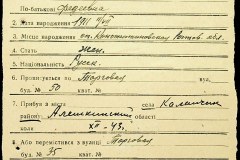 По-батькові Фадеевна
2. Дата народження 1911
3. Місце народження ст. Константиновская Ростов. обл.
4. Стать жен.
5. Національність Русск.
6. Проживають по Торговая
буд. № 50 кват.
7. Прибув з міста села Каланчак
району Алешкинский області
коли XII-43г.
8. Або перемістився з вулиці Торговая
буд. № 35 кват.